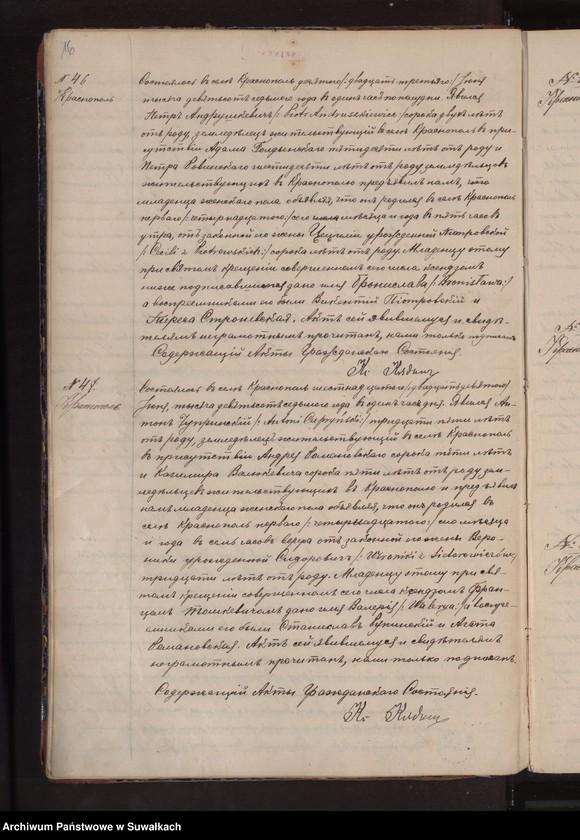 16
№ 46
Краснополь
Состоялось въ селѣ Краснополь десятого /: двадцать третьяго :/ Іюня
тысяча девятьсотъ седьмого года въ одинъ часъ пополудни. Явился
Петръ Андрушкевичъ /: Piotr Andruszkiewicz :/ сорока двухъ лѣтъ
отъ роду, земледѣлецъ жительствующій въ селѣ Краснополь въ при-
сутствіи Адама пятидесяти лѣтъ отъ роду и
Петра шестидесяти лѣтъ отъ роду земледѣльцевъ
жительствующихъ въ Краснополѣ предъявилъ намъ
младенца женскаго пола объявляя, что онъ родился въ селѣ Краснополь
перваго /: четырнадцатого :/ сего мѣсяца и года въ пять часовъ
утра, отъ законной его жены Цециліи урожденной Піотровской
/: Cecilii z Piotrowskich :/ сорока лѣтъ отъ роду. Младенцу этому
при святомъ крещеніи совершенномъ сего числа ксендзомъ
ниже подписавшимся дано имя Бронислава /: Bronisława :/
а воспріемниками его были Викентій Піотровскій и
. Актъ сей явившемуся и свидѣ-
телямъ неграмотнымъ прочитанъ, нами только подписанъ
Содержащій Акты Гражданскаго Состоянія.
Кс.
№ 47.
Краснополь
Состоялось въ селѣ Краснополь шестнадцатого /: двадцать девятого :/
Іюня, тысяча девятьсотъ седьмого года въ одинъ часъ дня. Явился Ан-
тонъ /: Antoni :/ тридцати пяти лѣтъ
отъ роду, земледѣлецъ жительствующій въ селѣ Краснополь
въ присутствіи Андрея Романовскаго сорока пяти лѣтъ
и Казимира сорока пяти лѣтъ отъ роду, зем-
ледѣльцевъ жительствующихъ въ Краснополѣ и предъявилъ
намъ младенца женскаго пола объявляя, что онъ родился въ
селѣ Краснополь перваго /: четырнадцатого :/ сего мѣсяца
и года въ семь часовъ вечера отъ законной его жены Веро-
ники урожденной Сидоровичъ /: Weroniki z Sidorowiczów :/
тридцати лѣтъ отъ роду. Младенцу этому при свя-
томъ крещеніи совершенномъ сего числа ксендзомъ Фран-
цомъ дано имя Валерія /: Walerya :/ а воспріе-
мниками его были Станиславъ и Агата
Романовская. Актъ сей явившемуся и свидѣтелямъ
неграмотнымъ прочитанъ, нами только подписанъ
Содержащій Акты Гражданскаго Состоянія.
Кс.
Archiwum Państwowe w Suwałkach